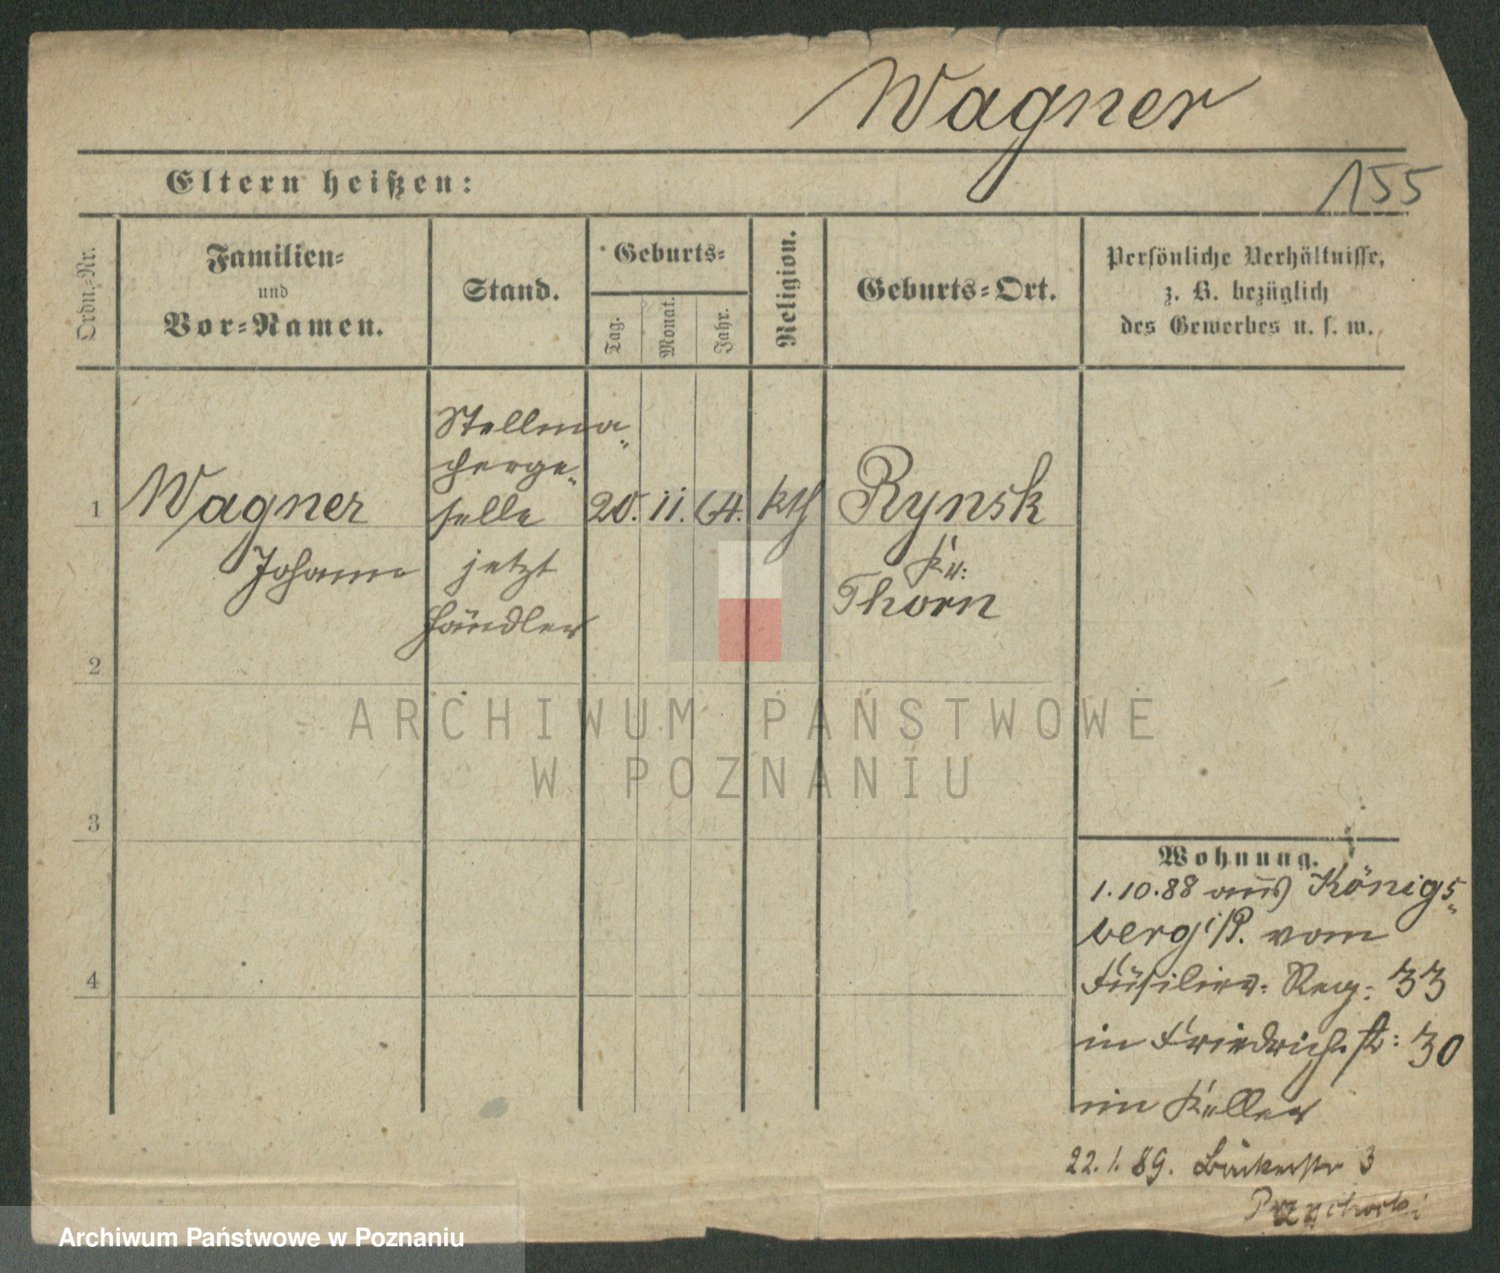 Wagner
155
Eltern heißen:
Ordn.-Nr.
Familien-
und
Vor-Namen.
Stand.
Geburts-
Tag.
Monat.
Jahr.
Religion.
Geburts-Ort.
Persönliche Verhältnisse,
z. B. bezüglich
des Gewerbes u. s. w.
1
Wagner
Johann
Stellma-
cherge-
selle
jetzt
Händler
20. 11. 64. kth
Rynsk
Kr:
Thorn
2
3
4
Wohnung.
1.10.88 aus Königs-
berg i/P. vom
Füsilier-Reg: 33
in Friedrichstr: 30
im Keller
22.1.89. Bäckerstr 3
ARCHIWUM PAŃSTWOWE
W POZNANIU
Archiwum Państwowe w Poznaniu